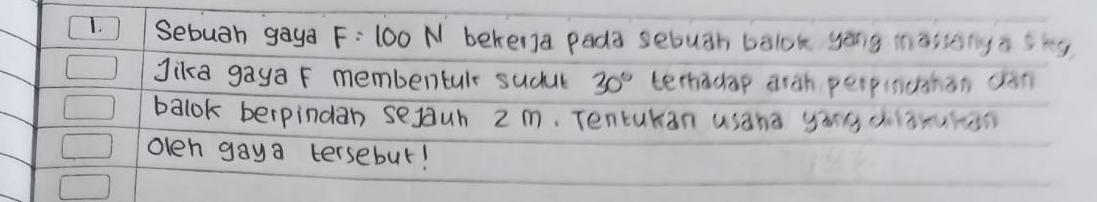 1. Sebuah gaya F = 100 N bekerja pada sebuah balok yang massanya 5 kg.
Jika gaya F membentuk sudut 30° terhadap arah perpindahan dan
balok berpindah sejauh 2 m. Tentukan usaha yang dilakukan
oleh gaya tersebut!